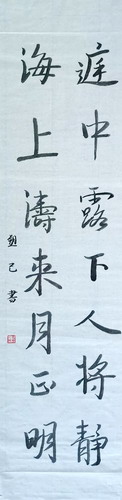 庭中露下人将靜
海上濤来月正明
己書